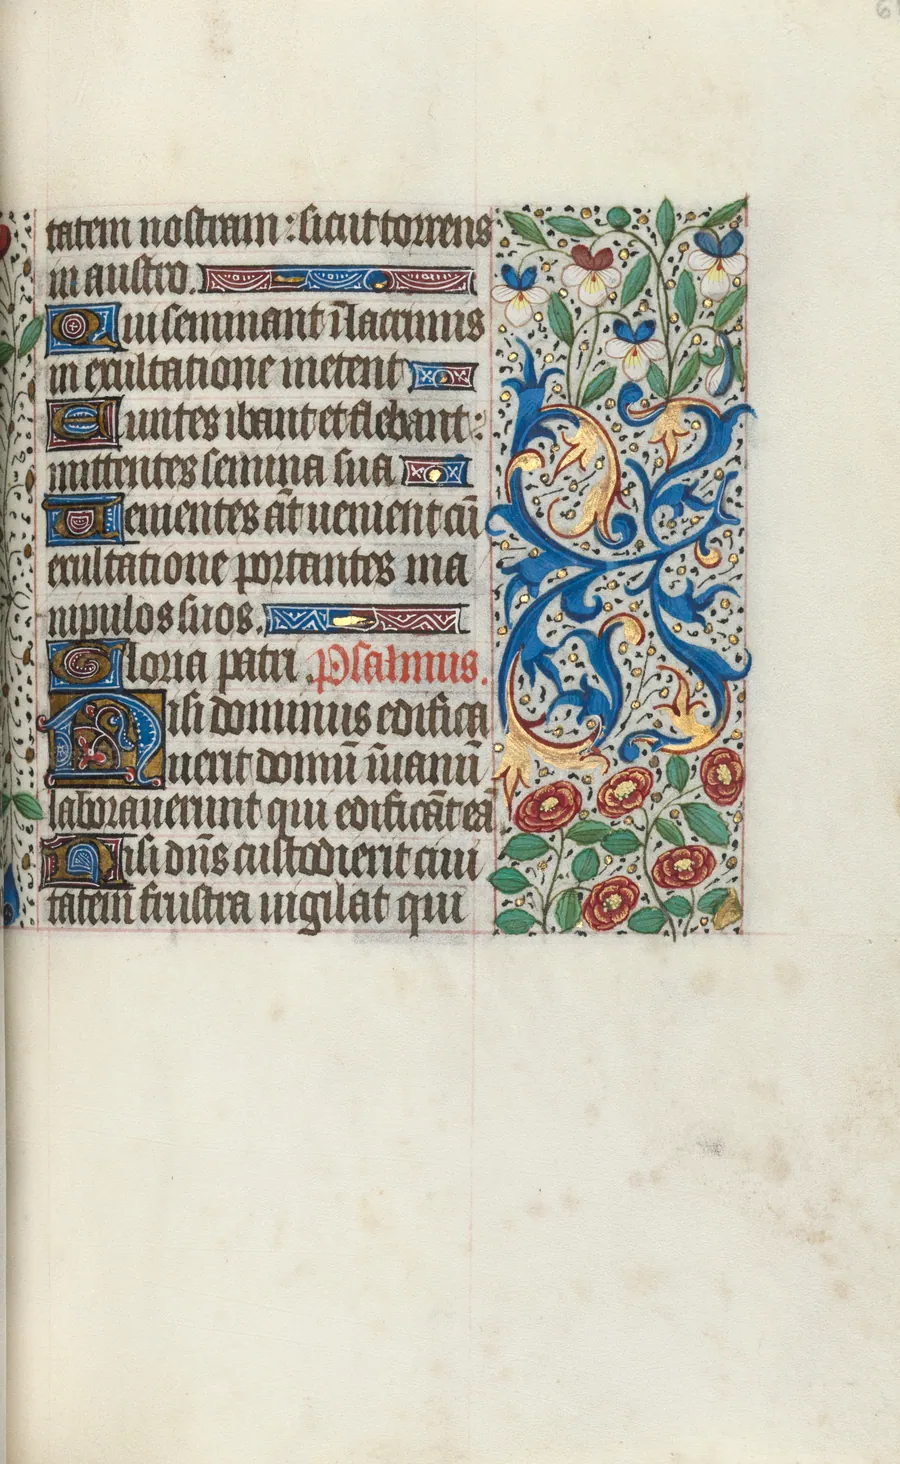 tatem nostram : sicut torrens
in austro.
Qui seminant i͂ lacrimis
in exultatione metent
Euntes ibant et flebant :
mittentes semina sua
Uenientes au͂t uenient cu͂
exultatione portantes ma
nipulos suos.
Gloria patri. Psalmus.
Nisi dominus edifica
uerit domu͂ i͂uanu͂
laborauerunt qui edifica͂t ea͂
Nisi dn͂s custodierit ciui
tatem frustra uigilat qui